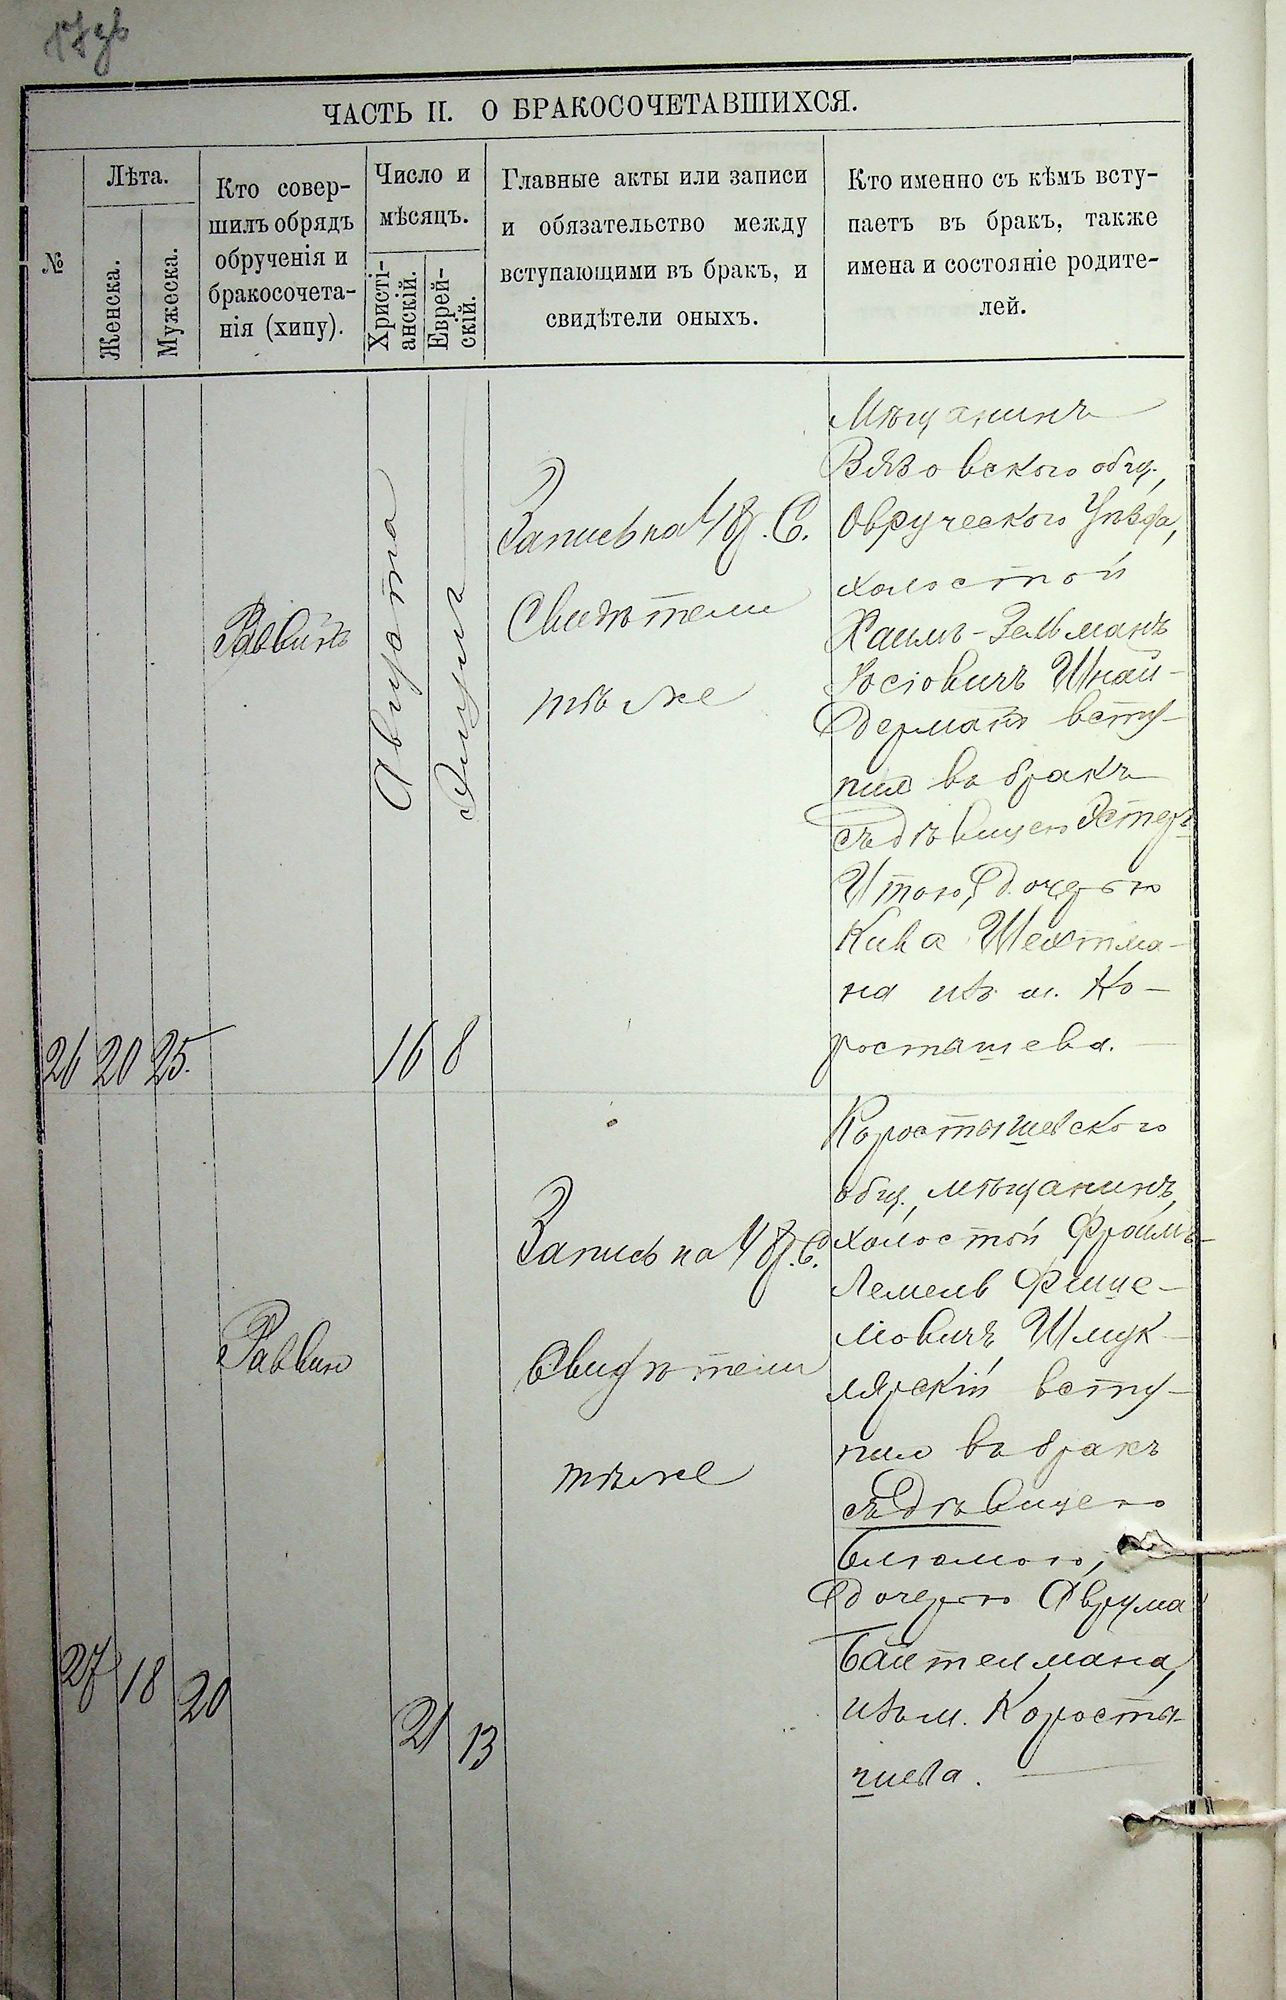 ЧАСТЬ II. О БРАКОСОЧЕТАВШИХСЯ.
№
Лѣта.
Женска.
Мужеска.
Кто совер-
шилъ обрядъ
обрученія и
бракосочета-
нія (хипу).
Число и
мѣсяцъ.
Христі-
анскій.
Еврей-
скій.
Главные акты или записи
и обязательство между
вступающими въ бракъ, и
свидѣтели оныхъ.
Кто именно съ кѣмъ всту-
паетъ въ бракъ, также
имена и состояніе родите-
лей.
26
20
25.
Раввинъ
Августа
16
Элулъ
8
Запись на 48 р. С.
Свидѣтели
тѣ же
Мѣщанинъ
Вязовского общ.,
Овруческого Уѣзда,
холостой
Хаимъ-Зельманъ
Іосіовичъ Шнай-
дерманъ всту-
пил въ бракъ
съ дѣвицею Эстеръ
Итою, дочерью
Кива Шехтма-
на изъ м. Ко-
ростышева.
27
18
20
Раввин
21
13
Запись на 48 р. С.
Свидѣтели
тѣ же
Коростышевского
общ., мѣщанинъ,
холостой Фроимъ-
Лемель
Шмук-
лярскій всту-
пил въ бракъ
съ дѣвицею
Блюмою,
дочерью Аврума
Байтелмана,
изъ м. Коросты-
шева.